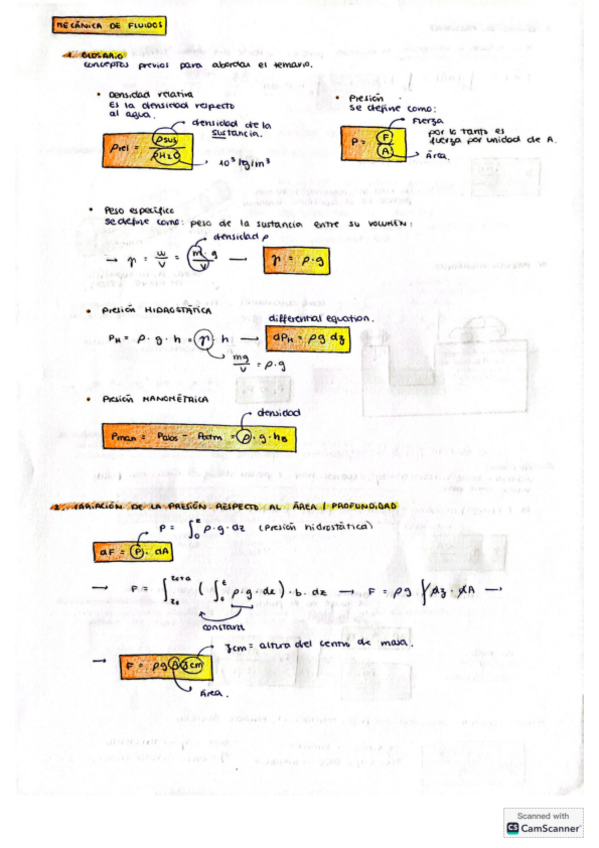 MECÁNICA DE FLUIDOS
1. GLOSARIO
conceptos previos para abordar el temario.
• Densidad relativa
Es la densidad respecto
al agua.
densidad de la
sustancia.
ρrel = ρsus / ρH2O
10³ kg/m³
• Presión
se define como:
Fuerza
P = F / A
por lo tanto es
fuerza por unidad de A.
Área.
• Peso específico
se define como: peso de la sustancia entre su VOLUMEN:
densidad ρ
→ γ = w/v = m·g/v → γ = ρ·g
• Presión HIDROSTÁTICA
differential equation.
PH = ρ·g·h = γ·h → dPH = ρg dz
mg/v = ρ·g
• Presión MANOMÉTRICA
densidad
Pman = Pabs - Patm = ρ·g·hB
2. VARIACIÓN DE LA PRESIÓN RESPECTO AL ÁREA / PROFUNDIDAD
P = ∫₀ᶻ ρ·g·dz (Presión hidrostática)
dF = P · dA
→ F = ∫ z₀ z₀+a ( ∫₀ᶻ ρ·g·dz ) · b · dz → F = ρg ∫ dz · dA →
constante
zcm = altura del centro de masa.
→ F = ρg A zcm
Área.
Scanned with
CS CamScanner